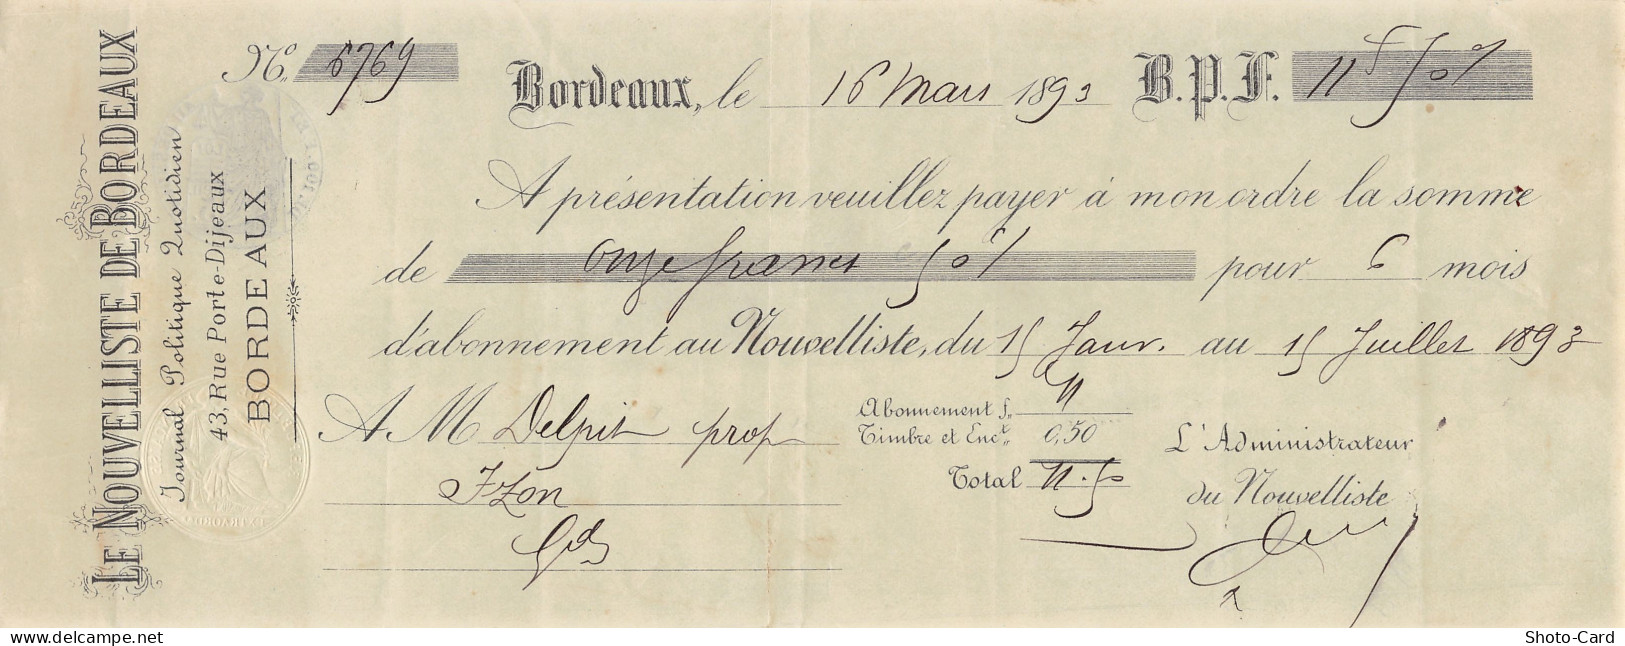 LE NOUVELLISTE DE BORDEAUX
Journal Politique Quotidien
43, Rue Porte-Dijeaux
BORDEAUX
No. 6769
Bordeaux, le 16 Mars 1893 B.P.F. 11f 50c/
A présentation veuillez payer à mon ordre la somme
de Onze francs 50c/ pour 6 mois
d'abonnement au Nouvelliste, du 15 Janv. au 15 Juillet 1893
A M Delpit prop
Izon
Gde
Abonnement f. 11
Timbre et Enct. 0,50
Total 11.50
L'Administrateur
du Nouvelliste
Shoto-Card